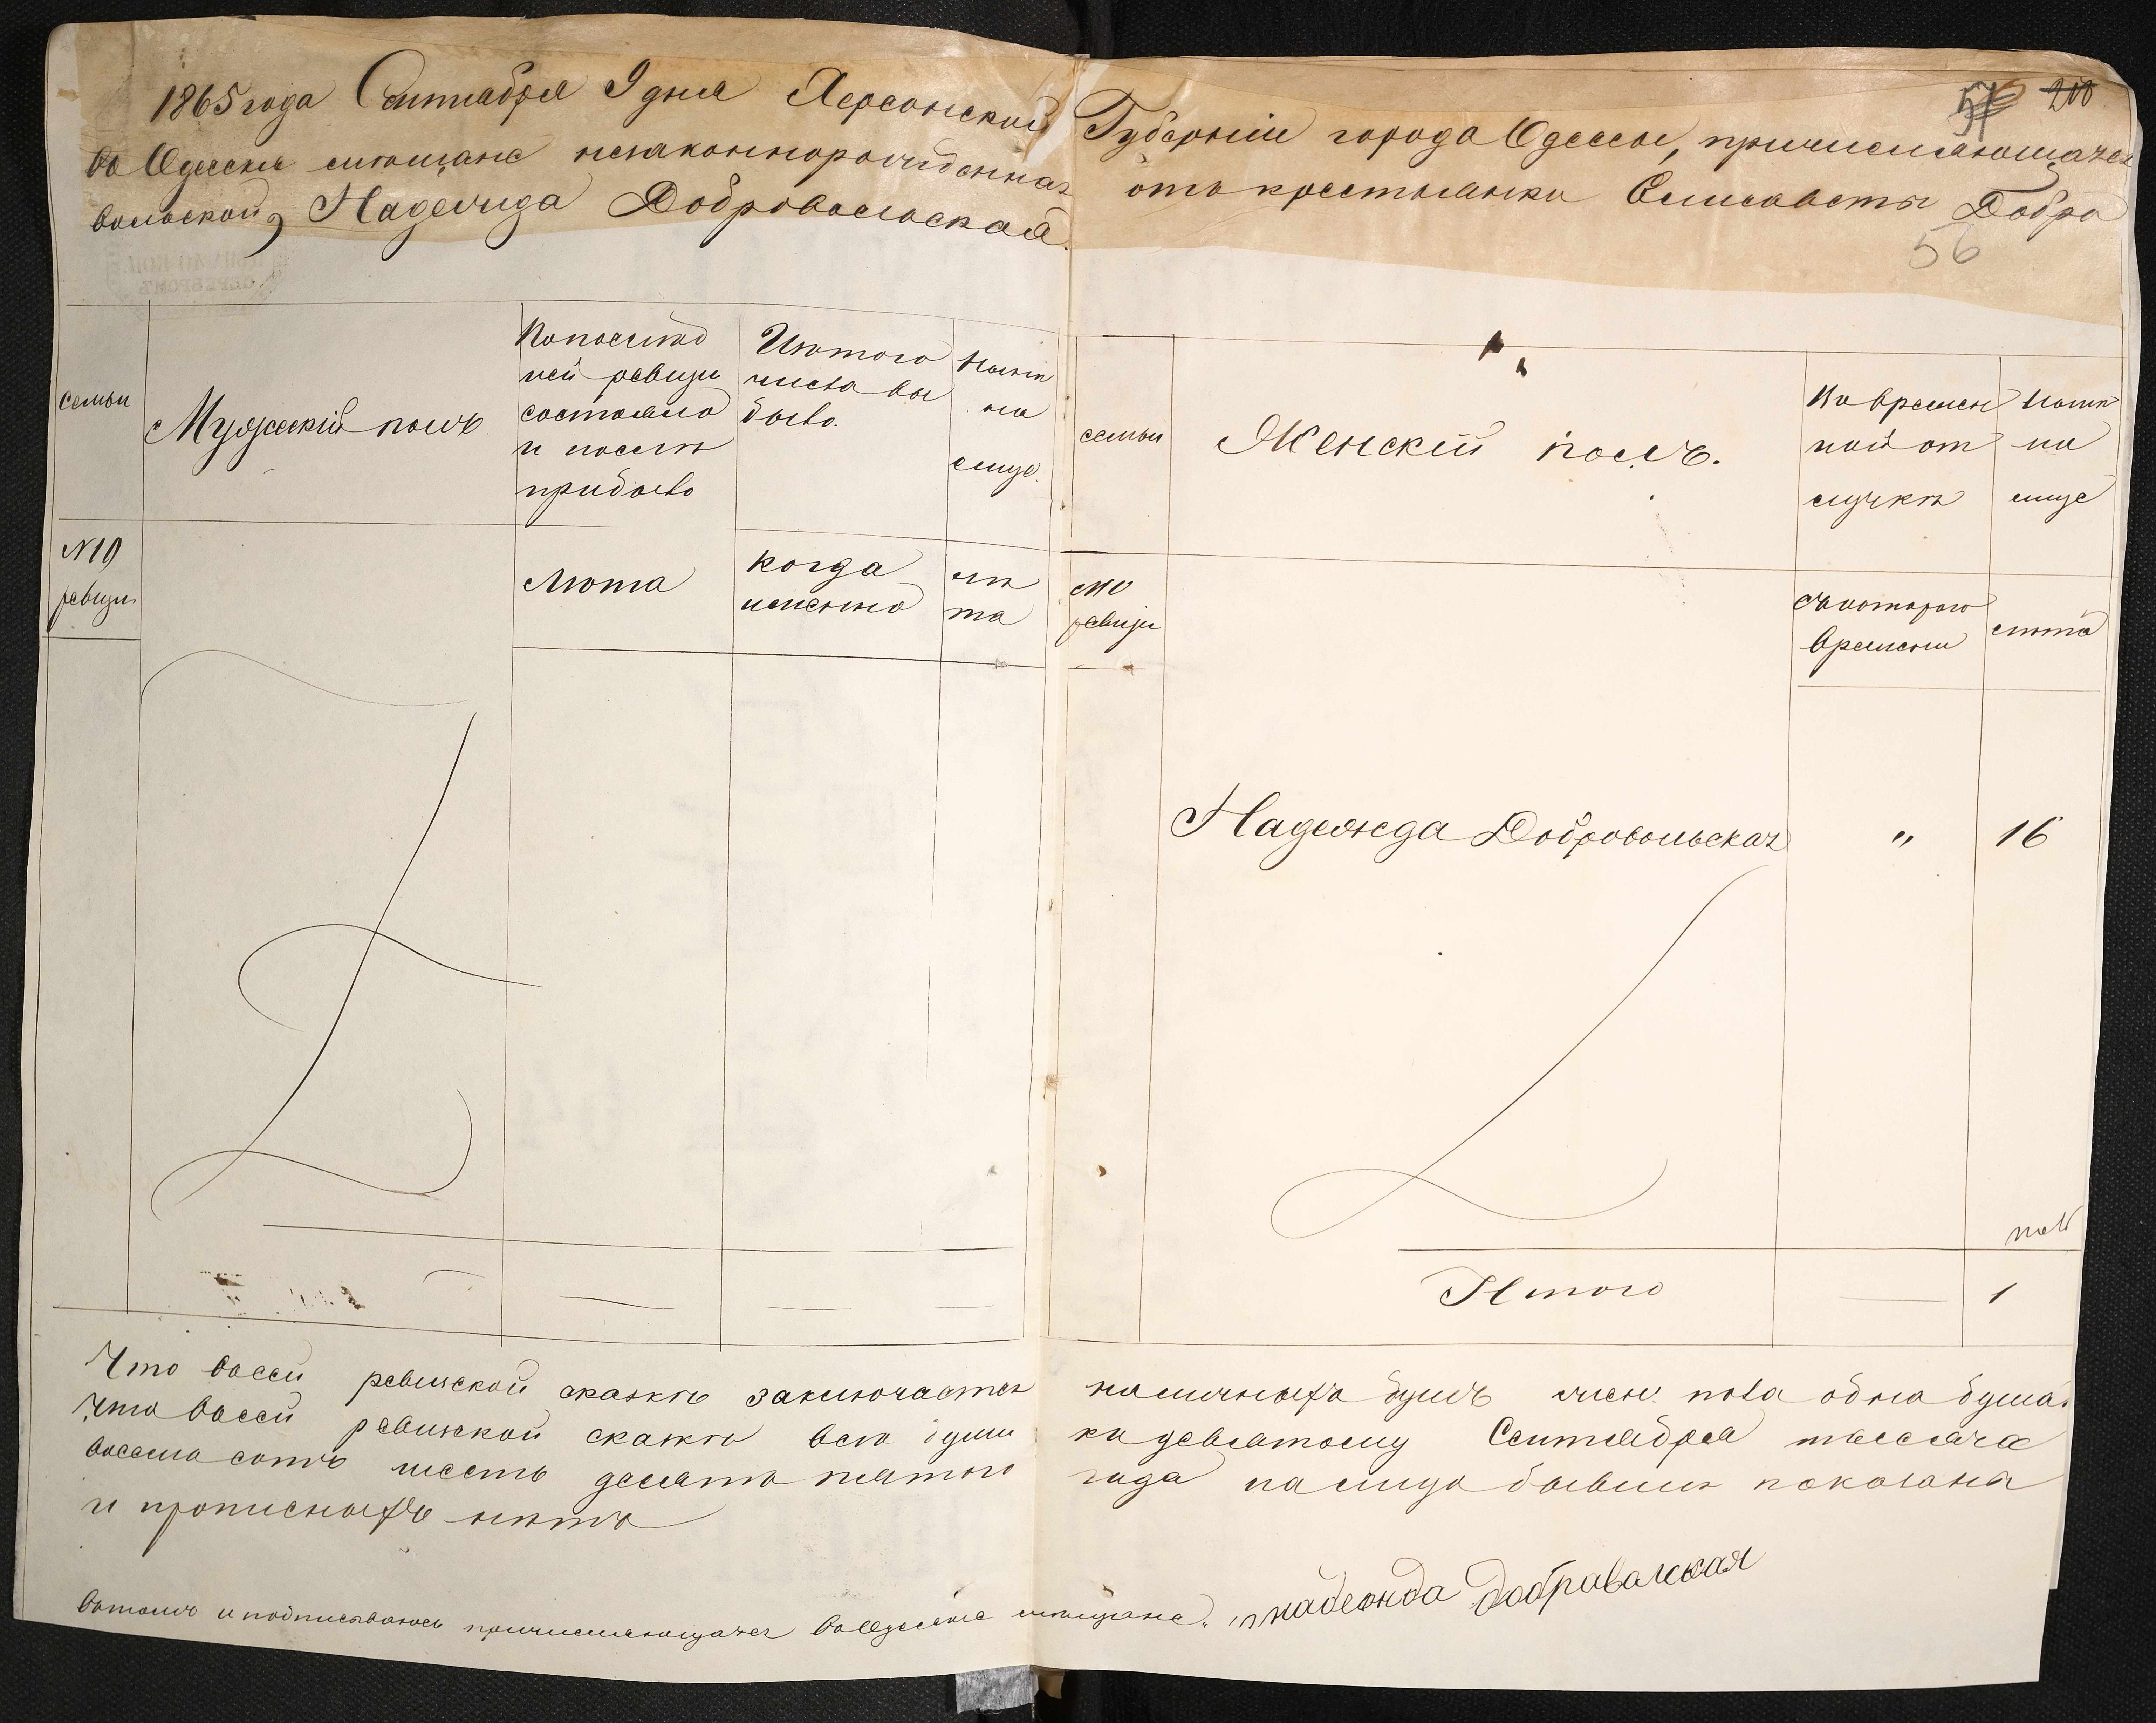 57 200
1865 года Сентября 9 дня Херсонской Губерніи города Одессы, причисляющаяся
во Одескіе мещане незаконнорожденная отъ крестьянки Елисаветы Добро
вольской, Надежда Добровольская.
56
семьи
Мужескій полъ
По послед
ней ревизіи
состояло
и после
прибыло
Изтого
числа вы
было.
Ныне
на
лице.
семьи
Женскій полъ.
Во времен
ной от
лучке
Ныне
на
лице
№10
ревизіи
Лета
когда
именно
ле
та
№
ревизіи
съ котораго
времени
лета
Надежда Добровольская " 16
Итого 1
Что всей ревиской сказке заключается наличныхъ душъ жен. пола одна душа.
Что всей ревиской сказке все души ко девятому Сентября тысяча
восемь сотъ шесть десять пятого года на лицо бывшіе показаны
и прописныхъ нетъ
Вътомъ и подписываюсь причисляющаяся во Одескіе мещане. надежда добровалская